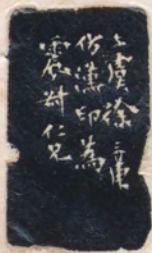 上虞徐三庚
仿漢印為
震仁兄